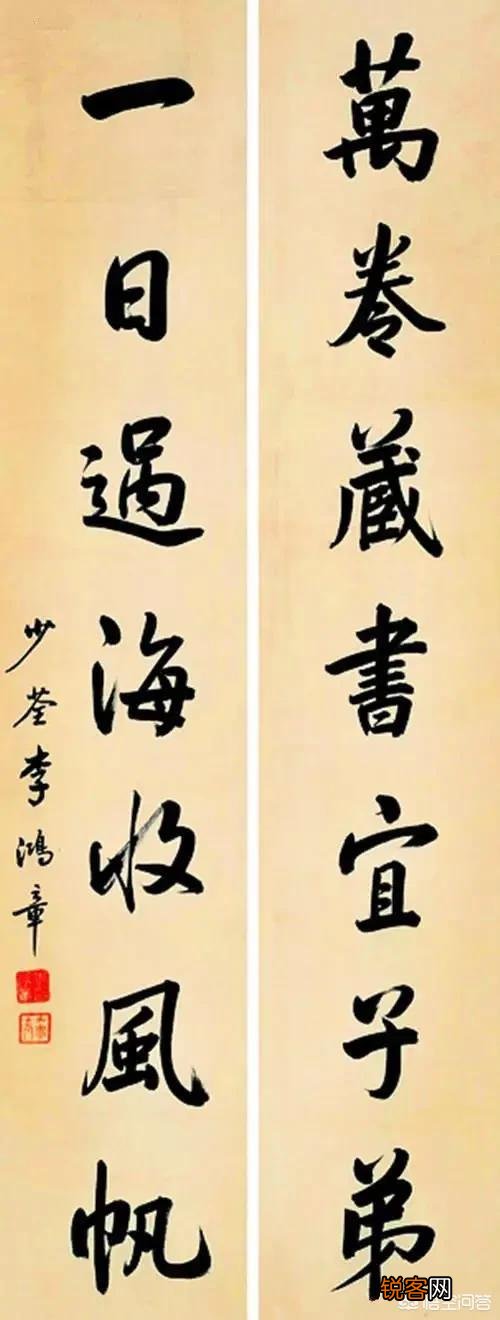 萬卷藏書宜子弟
一日過海收風帆
少荃李鴻章
锐客网
悟空问答